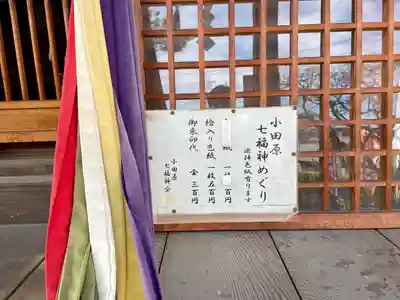 小田原
七福神めぐり
巡拝色紙有ります
絵入り色紙一枚五百円
御朱印代 金三百円
小田原
七福神会